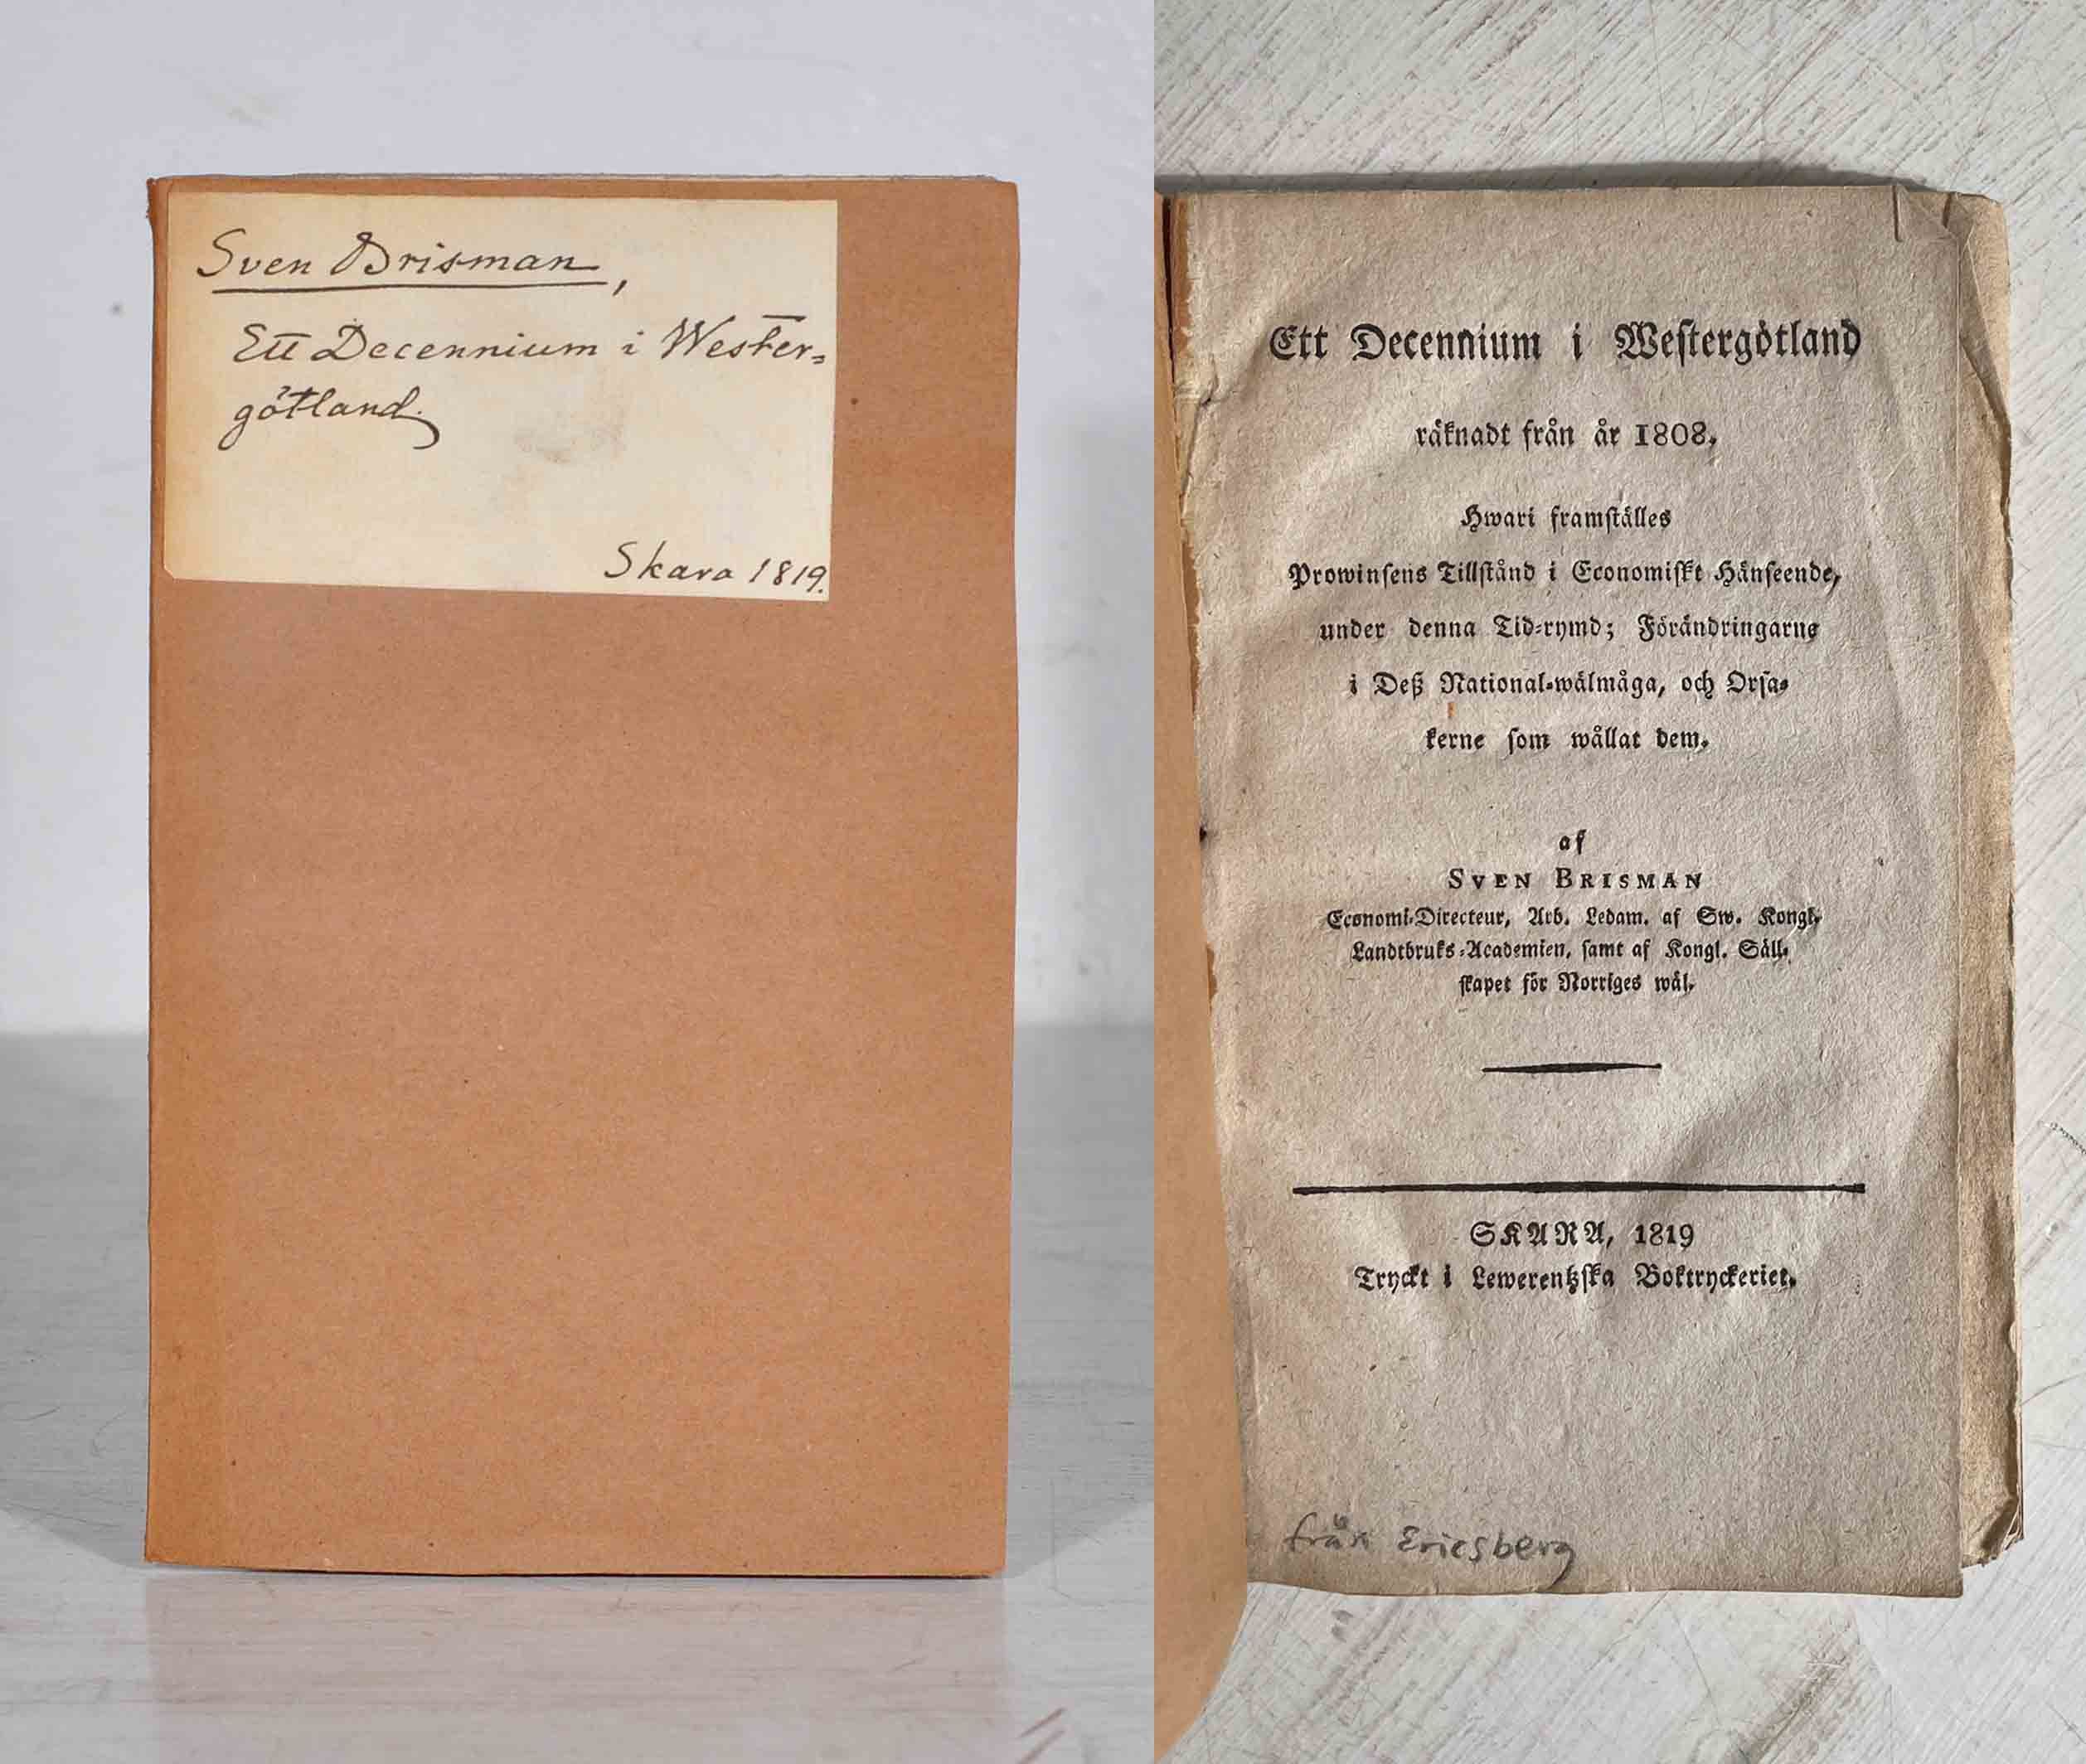 Sven Brisman,
Ett Decennium i Wester=
götland.
Skara 1819.
Ett Decennium i Westergötland
räknadt från år 1808.
Hwari framställes
Prowinsens Tillstånd i Economiskt Hänseende,
under denna Tid-rymd; Förändringarne
i Deß National-wälmåga, och Orsa-
kerne som wållat dem.
af
SVEN BRISMAN
Economi-Directeur, Arb. Ledam. af Sw. Kongl.
Landtbruks-Academien, samt af Kongl. Säll-
skapet för Norriges wäl.
SKARA, 1819
Tryckt i Lewerentzska Boktryckeriet.
från Ericsberg